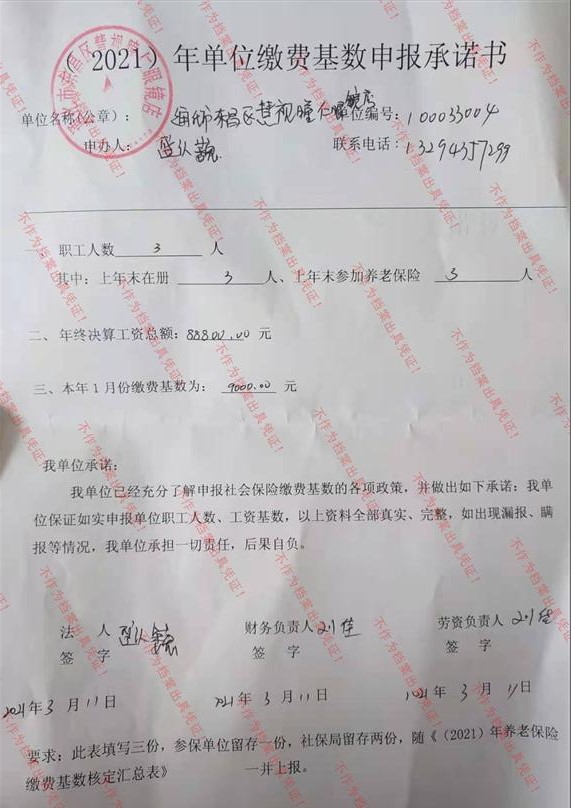 （2021）年单位缴费基数申报承诺书
单位名称(公章)： 东昌区慧视瞳 眼镜店 单位编号：100033004
申办人： 联系电话：13294357299
一 职工人数 3 人
其中：上年末在册 3 人、上年末参加养老保险 3 人
二、年终决算工资总额：88800.00 元
三、本年1月份缴费基数为： 9000.00 元
我单位承诺：
我单位已经充分了解申报社会保险缴费基数的各项政策，并做出如下承诺：我单
位保证如实申报单位职工人数、工资基数，以上资料全部真实、完整，如出现漏报、瞒
报等情况，我单位承担一切责任，后果自负。
法 人 财务负责人 刘佳 劳资负责人 刘佳
签 字 签 字 签 字
2021年3月11日 2021年3月11日 2021年3月11日
要求：此表填写三份，参保单位留存一份，社保局留存两份，随《（2021）年养老保险
缴费基数核定汇总表》 一并上报。
不作为档案出具凭证！